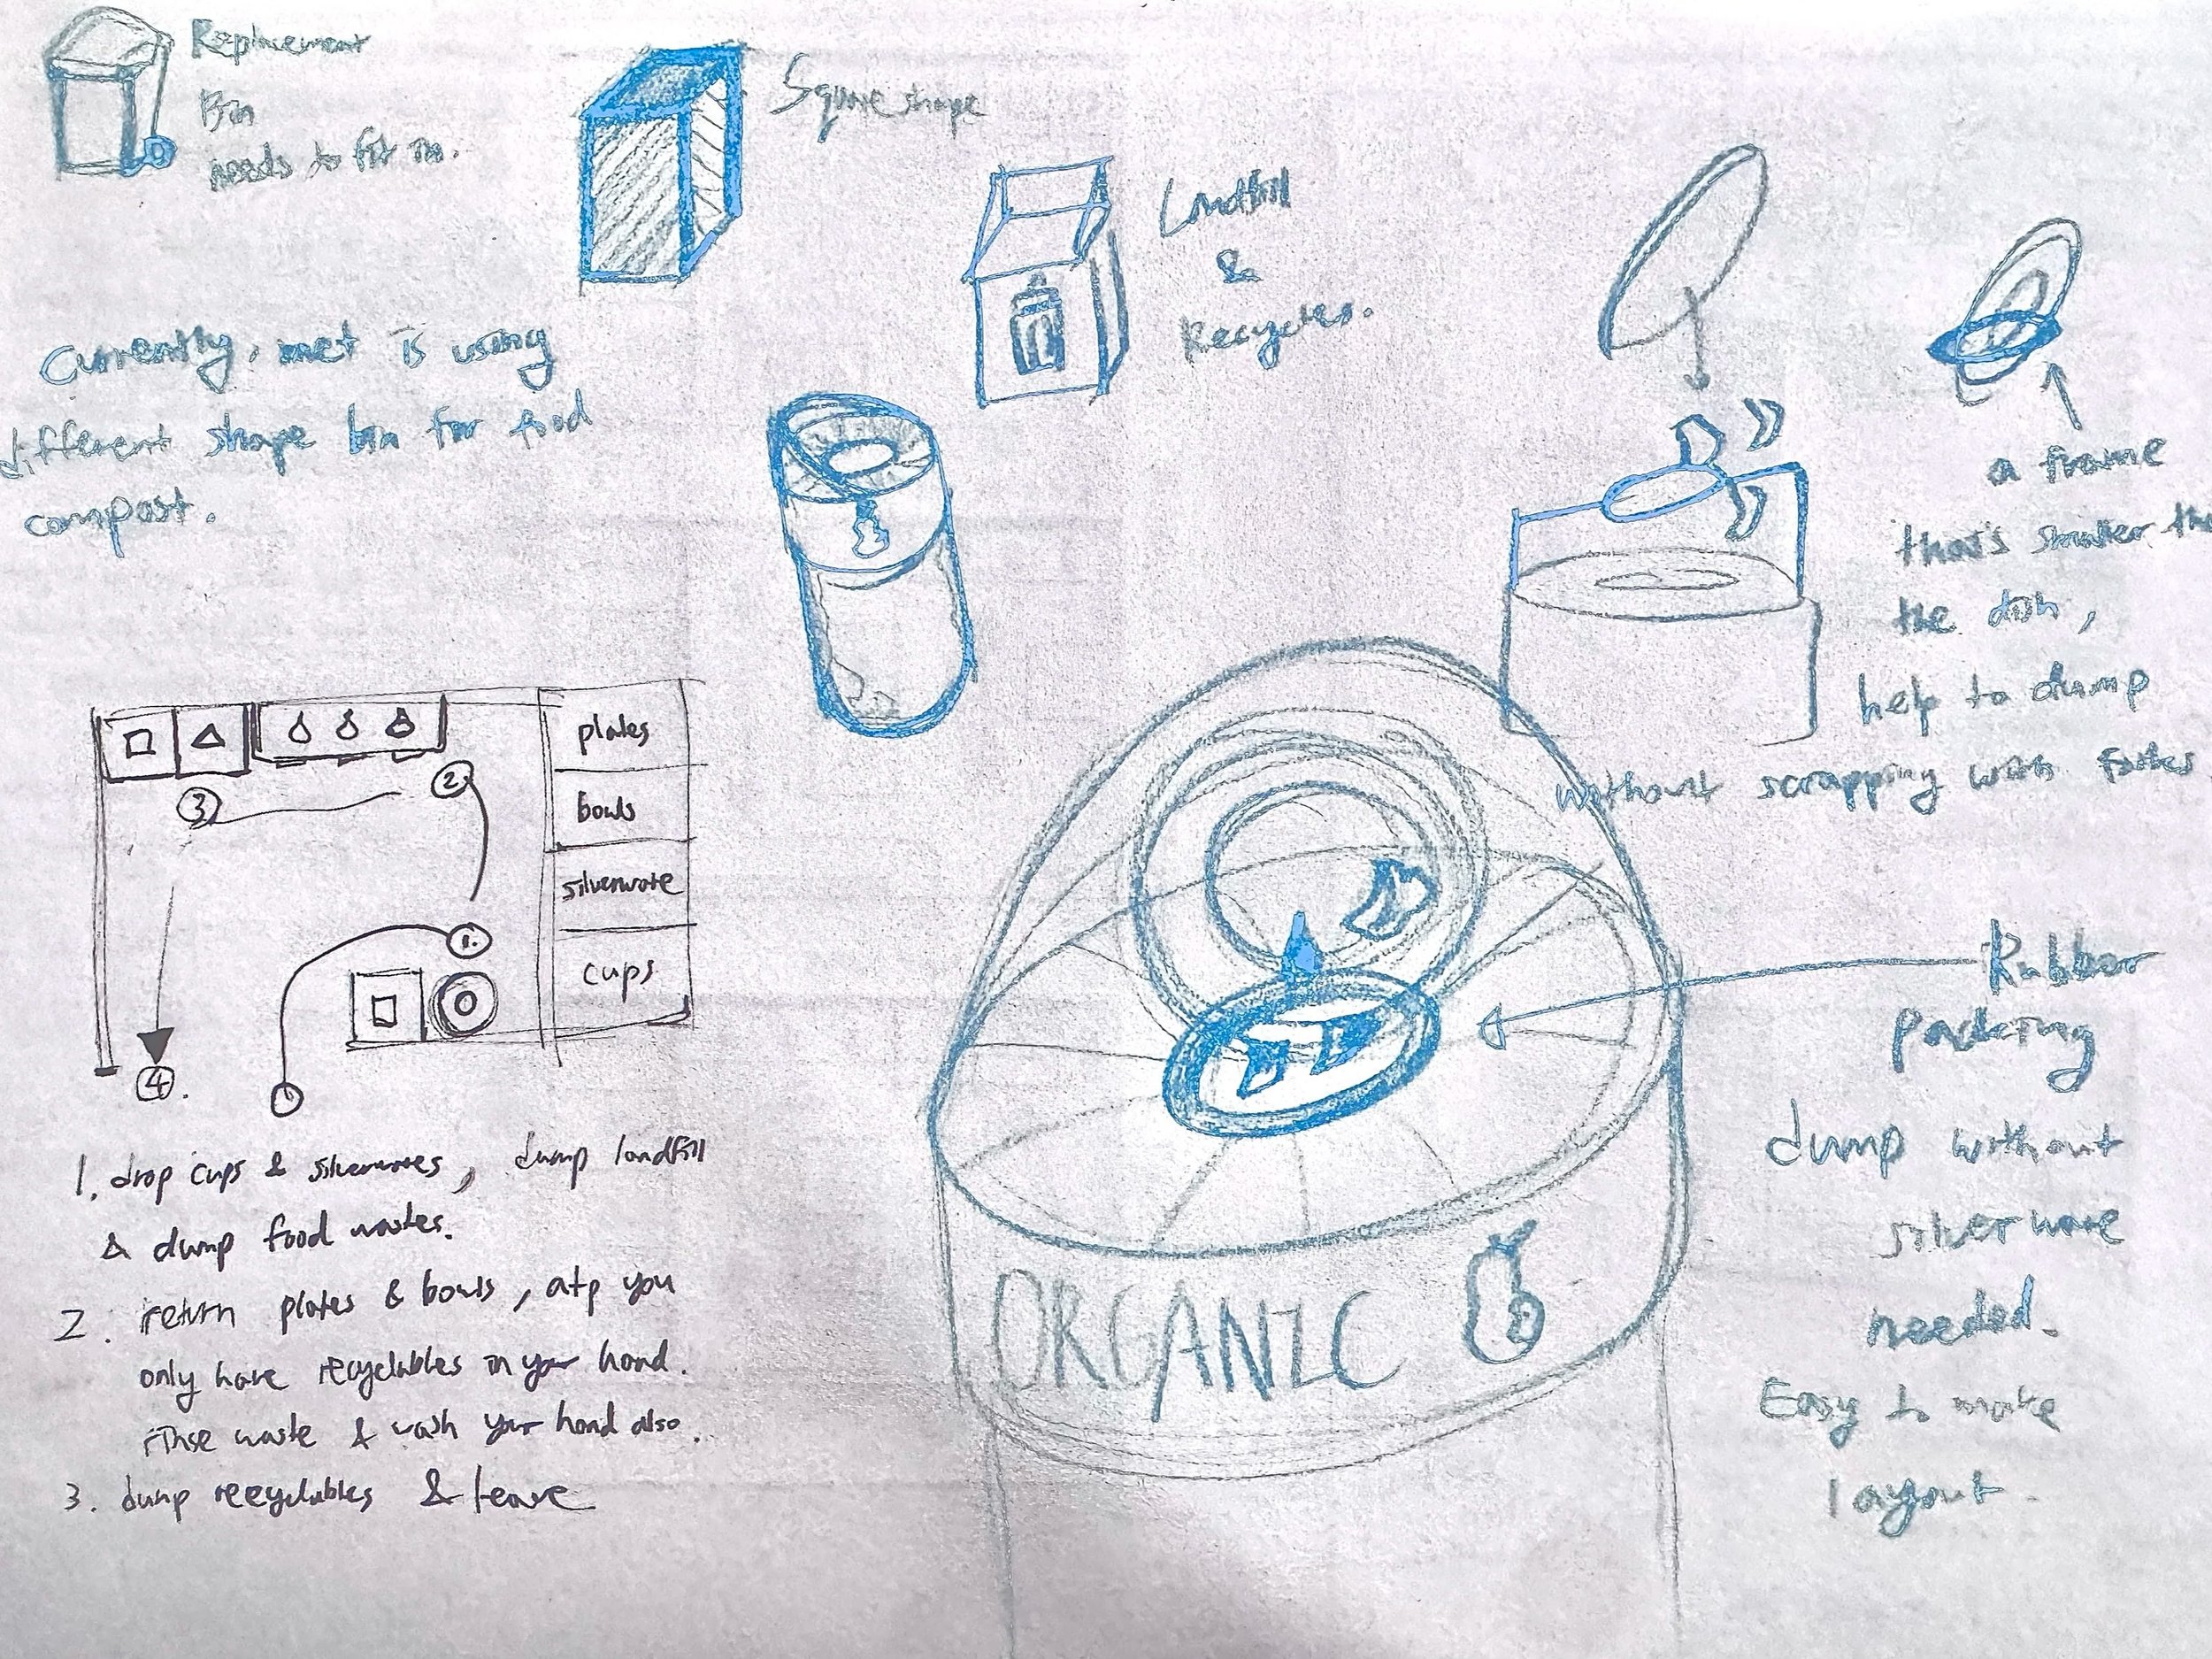 Replacement
Bin
needs to fit in.
Square shape
Landfill
&
Recycles.
Currently, met is using
different shape bin for food
compost.
a frame
that's smaller tha
the dish,
help to dump
without scrapping with forks
plates
bowls
silverware
cups
2
3
1.
4.
Rubber
packing
dump without
silverware
needed.
Easy to make
layout.
ORGANIC
1. drop cups & silverwares, dump landfill
& dump food wastes.
2. return plates & bowls, atp you
only have recyclables in your hand.
rinse waste & wash your hand also.
3. dump recyclables & leave